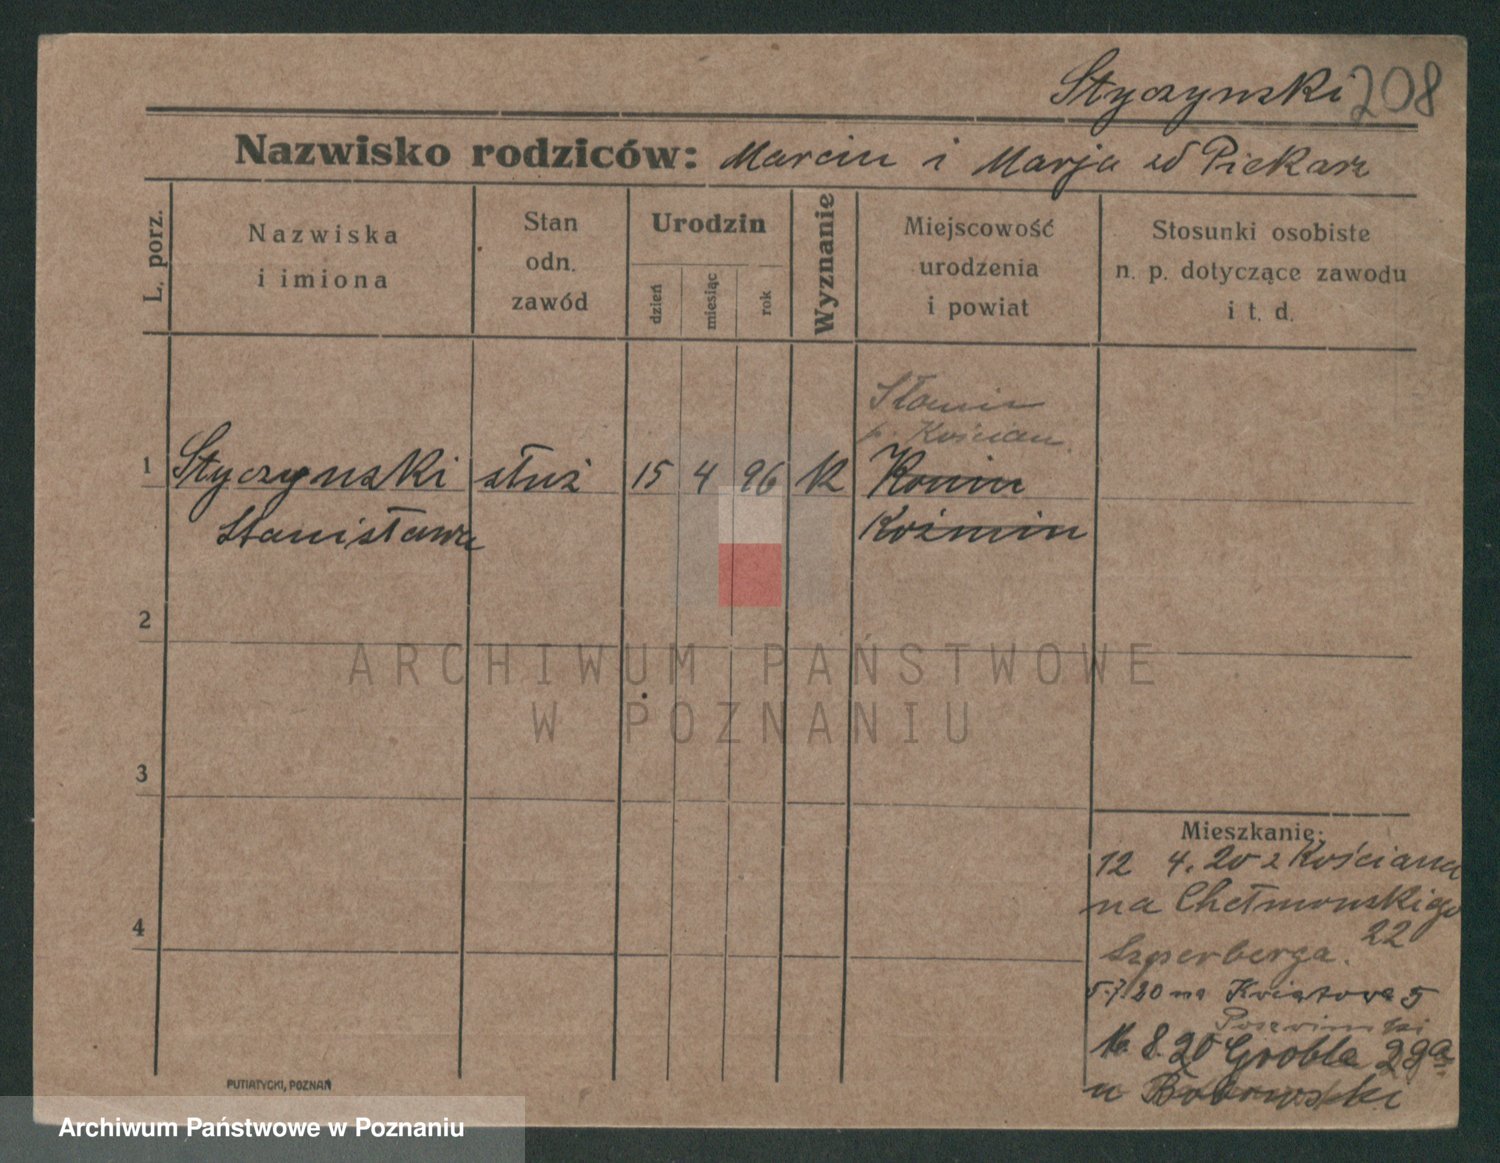 Styczynski 208
Nazwisko rodziców: Marcin i Marja zd Piekarz
L. porz.
Nazwiska
i imiona
Stan
odn.
zawód
Urodzin
dzień
miesiąc
rok
Wyznanie
Miejscowość
urodzenia
i powiat
Stosunki osobiste
n. p. dotyczące zawodu
i t. d.
Słonin
p. Kościan
1 Styczynski służ 15 4 96 K Konin
Stanisława Koźmin
2
3
4
Mieszkanie:
12 4. 20 z Kościana
na Chełmonskigo
22
Szperberga.
5.7.20 na Kwiatowa 5
16. 8. 20 Grobla 28a
u Bobrowski
PUTIATYCKI, POZNAŃ
ARCHIWUM PAŃSTWOWE
W POZNANIU
Archiwum Państwowe w Poznaniu